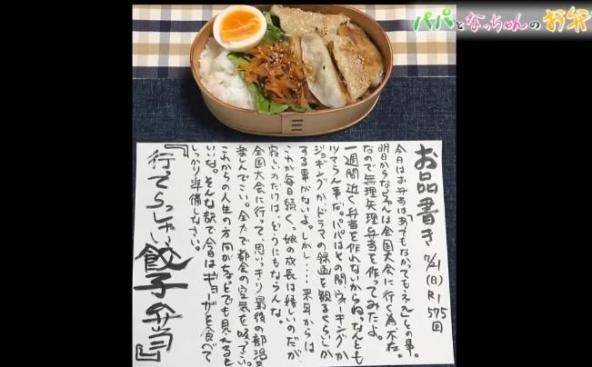 パパとなっちゃんのお弁
お品書き 7/21(日) R1 575回
今日はお弁当は「あってもなかってもええ」との事。
明日からなっちゃんは全国大会に行く為不在。
なので無理矢理弁当を作ってみたよ。
一週間近く弁当を作れないからね。なんとも
ツマらん事だ。パパはその間、ウォーキングか
ジョギングか、ドラマの録画を観るくらいしか
する事がないよ。しかし…来年からは
これが毎日続く。娘の成長は嬉しいのだが
寂しいのだけは、どうにもならんな。
全国大会に行って思いっきり最後の部活
楽しんでこい。全力で都会の空気を吸って
これからの人生の方向かなどでも見えると
いいな。そんな訳で今日はギョーザを食べて
しっかり準備しなさい。
『行てらっしゃい餃子弁当』